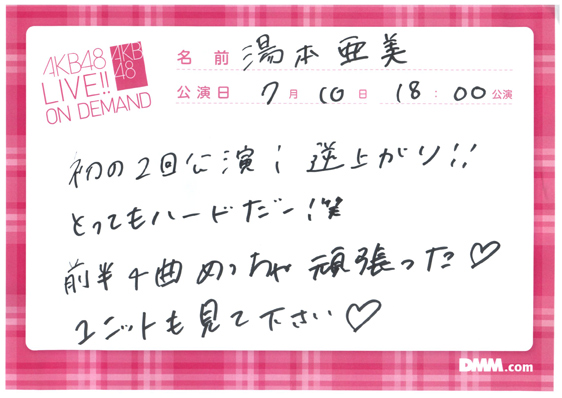 AKB48
LIVE!!
ON DEMAND
AKB
48
名前 湯本亜美
公演日 7月10日 18:00公演
初の2回公演! 逆上がり!!
とってもハードだー!笑
前半4曲めっちゃ頑張った♡
ユニットも見て下さい♡
DMM.com